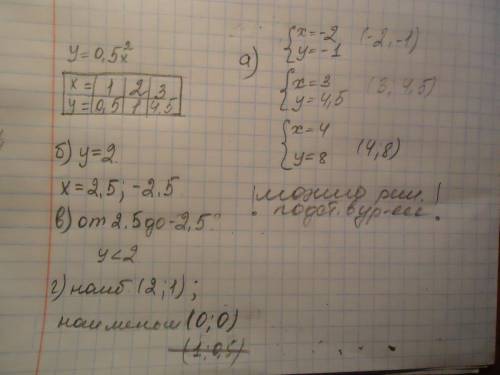 y=0,5x²
x= 1 2 3
y= 0,5 1 4,5
б) y=2
x=2,5; -2.5
в) от 2.5 до -2,5
y<2
г) наиб. (2;1);
наименьш (0;0)
(1;0,5)
а) {x=-2 (-2,-1)
y=-1
{x=3 (3; 4,5)
y=4,5
{x=4
y=8 (4,8)
! можно реш. !
подст. в ур-